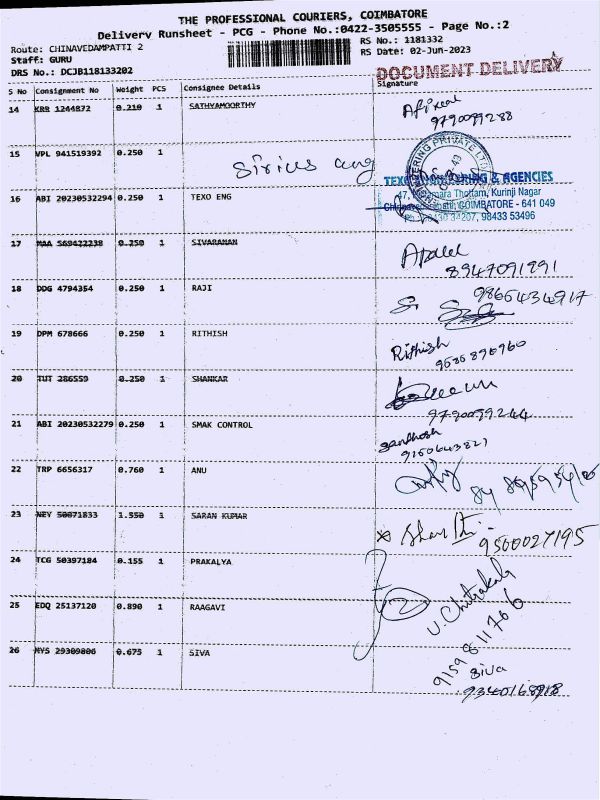 THE PROFESSIONAL COURIERS, COIMBATORE
Delivery Runsheet - PCG - Phone No.:0422-3505555 - Page No.:2
Route: CHINAVEDAMPATTI 2
RS No.: 1181332
Staff: GURU
RS Date: 02-Jun-2023
DRS No.: DCJB118133202
DOCUMENT DELIVERY
S No Consignment No Weight PCS Consignee Details Signature
14 KRR 1244872 0.210 1 SATHYAMOORTHY
9790099288
15 VPL 941519392 0.250 1 Sirius eng
& AGENCIES
Thottam, Kurinji Nagar
COIMBATORE - 641 049
34207, 98433 53496
16 ABI 20230532294 0.250 1 TEXO ENG
17 MAA 569422238 0.250 1 SIVARAMAN
8947091991
18 DDG 4794354 0.250 1 RAJI
9866434917
19 DPM 678666 0.250 1 RITHISH Rithish
9686896960
20 TUT 286559 0.250 1 SHANKAR
9790099244
21 ABI 20230532279 0.250 1 SMAK CONTROL Santhosh
9150643821
22 TRP 6656317 0.760 1 ANU
23 NEY 50071833 1.550 1 SARAN KUMAR
9500027195
24 TCG 50397184 0.155 1 PRAKALYA
25 EDQ 25137120 0.890 1 RAAGAVI U. Chitrakala
9159811766
26 MYS 29309806 0.675 1 SIVA Siva
9340168918